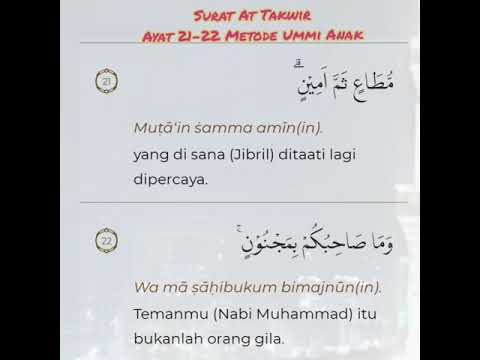 Surat At Takwir
Ayat 21-22 Metode Ummi Anak
21
مُّطَاعٍ ثَمَّ اَمِيْنٍۗ
Muṭā‘in ṡamma amīn(in).
yang di sana (Jibril) ditaati lagi
dipercaya.
22
وَمَا صَاحِبُكُمْ بِمَجْنُوْنٍۚ
Wa mā ṣāḥibukum bimajnūn(in).
Temanmu (Nabi Muhammad) itu
bukanlah orang gila.